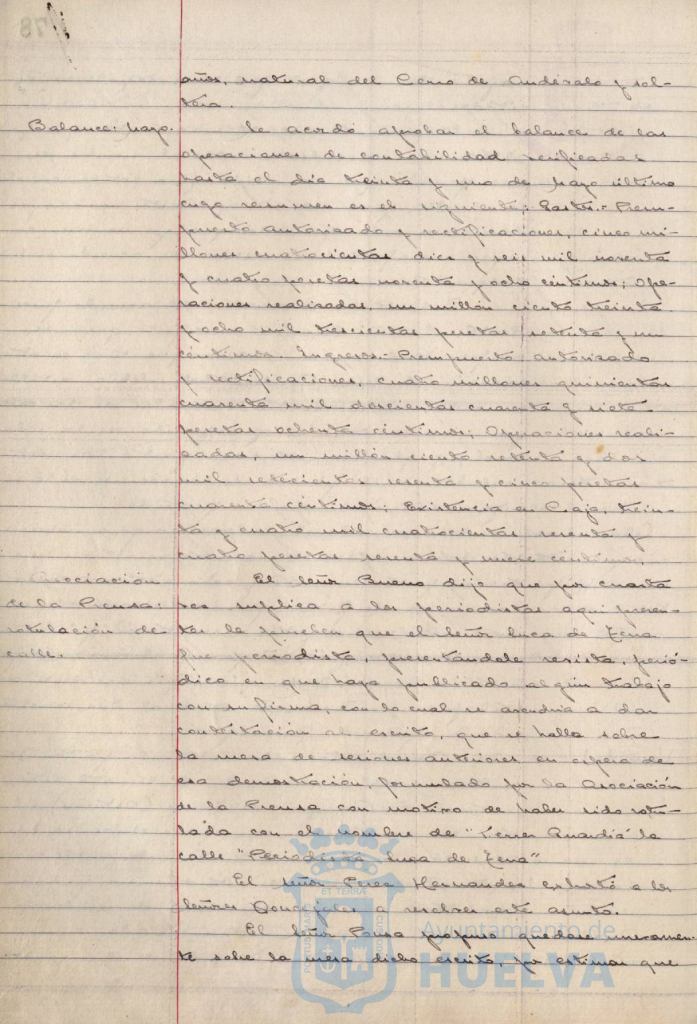 años, natural del Cerro de Andévalo y sol-
tera.
Balance: Mayo.
Se acordó aprobar el balance de las
operaciones de contabilidad verificadas
hasta el día treinta y uno de Mayo último
cuyo resumen es el siguiente: Gastos.- Presu-
puesto autorizado y rectificaciones, cinco mi-
llones cuatrocientas diez y seis mil noventa
y cuatro pesetas noventa y ocho céntimos; Ope-
raciones realizadas, un millón ciento treinta
y ocho mil trescientas pesetas setenta y un
céntimos. Ingresos.- Presupuesto autorizado
y rectificaciones, cuatro millones quinientas
cuarenta mil doscientas cuarenta y siete
pesetas ochenta céntimos; Operaciones reali-
zadas, un millón ciento setenta y dos
mil setecientas sesenta y cinco pesetas
cuarenta céntimos; Existencia en Caja, trein-
ta y cuatro mil cuatrocientas sesenta y
cuatro pesetas sesenta y nueve céntimos.
Asociación
de la Prensa:
rotulación de
calle.
El señor Bueno dijo que por cuarta
vez suplica a los periodistas aquí presen-
tes le prueben que el señor Luca de Tena
fue periodista, presentándole revista, perió-
dico en que haya publicado algún trabajo
con su firma, con lo cual se avendría a dar
contestación al escrito, que se halla sobre
la mesa de sesiones anteriores en espera de
esa demostración, formulado por la Asociación
de la Prensa con motivo de haber sido rotu-
lada con el nombre de "Ferrer Guardia" la
calle "Periodista Luca de Tena"
El señor Perez Hernandez exhortó a los
señores Concejales a resolver este asunto.
El señor Ponsa propuso quedase nuevamen-
te sobre la mesa dicho escrito, por estimar que
Ayuntamiento de
HUELVA